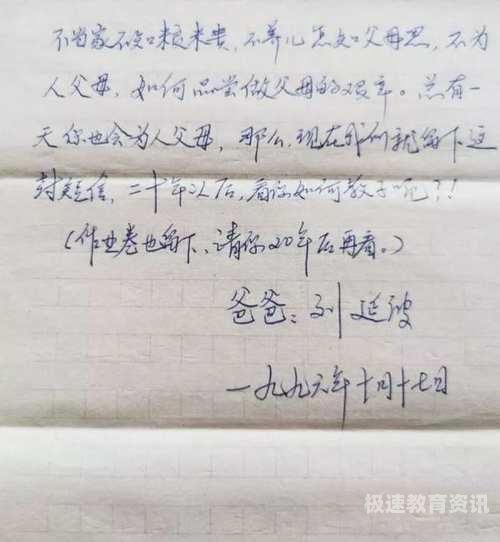 不当家不知米贵，不养儿怎知父母恩，不为
人父母，如何品尝做父母的艰辛。总有一
天你也会为人父母，那么，现在我们就留下这
封短信，二十年以后，看你如何教子呢？！
（作业卷也留下、请你20年后再看。）
爸爸：刘延波
一九九六年十月十七日
极速教育资讯